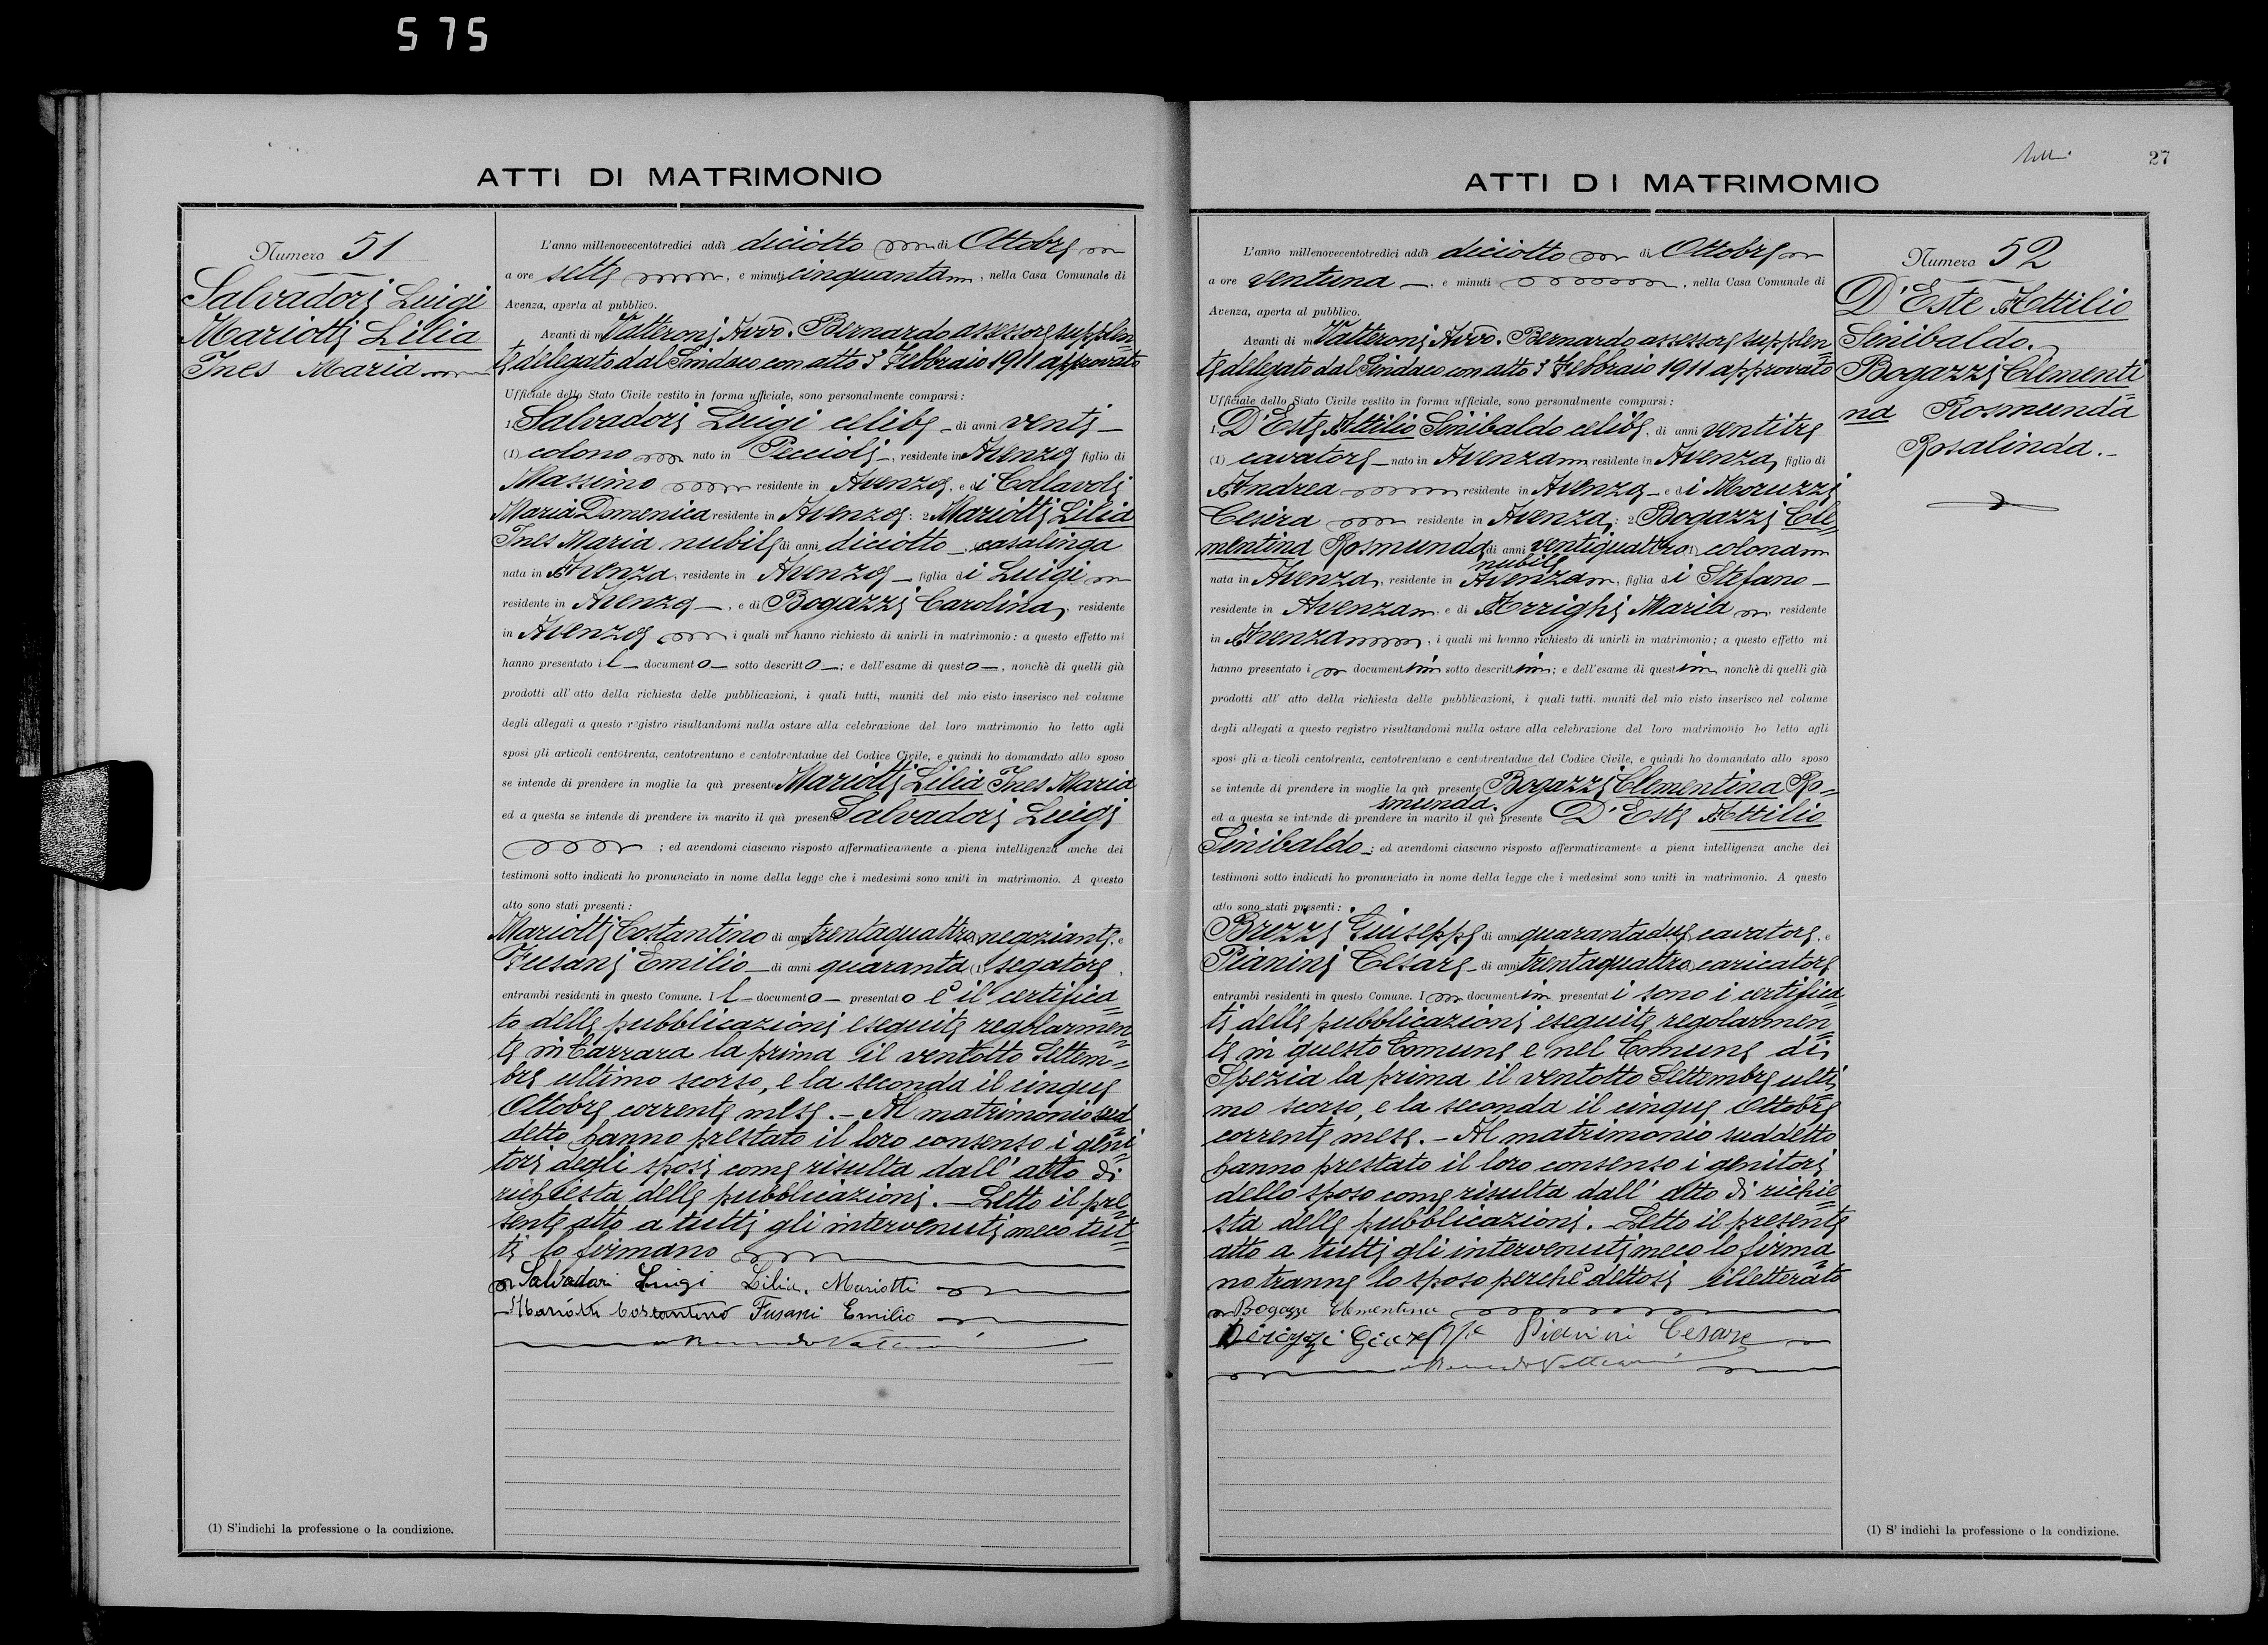 575
ATTI DI MATRIMONIO
Numero 51
Salvadori Luigi
Mariotti Lilia
Ines Maria
L'anno millenovecentotredici addì diciotto di Ottobre
a ore sette, e minuti cinquanta, nella Casa Comunale di
Avenza, aperta al pubblico.
Avanti di m Vatteroni Avvo. Bernardo assessore supplen=
te delegato dal Sindaco con atto 3 Febbraio 1911 approvato
Ufficiale dello Stato Civile vestito in forma ufficiale, sono personalmente comparsi:
1. Salvadori Luigi celibe - di anni venti -
(1) colono nato in Peccioli -, residente in Avenza figlio di
Massimo residente in Avenza, e di Collavoli
Maria Domenica residente in Avenza: 2 Mariotti Lilia
Ines Maria nubile di anni diciotto - casalinga
nata in Avenza, residente in Avenza - figlia di Luigi
residente in Avenza -, e di Bogazzi Carolina, residente
in Avenza i quali mi hanno richiesto di unirli in matrimonio: a questo effetto mi
hanno presentato il - documento - sotto descritto -; e dell'esame di questo -, nonchè di quelli già
prodotti all'atto della richiesta delle pubblicazioni, i quali tutti, muniti del mio visto inserisco nel volume
degli allegati a questo registro risultandomi nulla ostare alla celebrazione del loro matrimonio ho letto agli
sposi gli articoli centotrenta, centotrentuno e centotrentadue del Codice Civile, e quindi ho domandato allo sposo
se intende di prendere in moglie la quì presente Mariotti Lilia Ines Maria
ed a questa se intende di prendere in marito il quì presente Salvadori Luigi
; ed avendomi ciascuno risposto affermativamente a piena intelligenza anche dei
testimoni sotto indicati ho pronunciato in nome della legge che i medesimi sono uniti in matrimonio. A questo
atto sono stati presenti:
Mariotti Costantino di anni trentaquattro negoziante, e
Fusani Emilio - di anni quaranta (1) segatore,
entrambi residenti in questo Comune. Il - documento - presentato è il certifica=
to delle pubblicazioni eseguite regolarmen=
te in Carrara la prima il ventotto Settem=
bre ultimo scorso, e la seconda il cinque
Ottobre corrente mese. - Al matrimonio sud=
detto hanno prestato il loro consenso i geni=
tori degli sposi come risulta dall'atto di
richiesta delle pubblicazioni. - Letto il pre=
sente atto a tutti gli intervenuti meco tut=
ti lo firmano
Salvadori Luigi Lilia. Mariotti
Mariotti Costantino Fusani Emilio
Bernardo Vatteroni
(1) S'indichi la professione o la condizione.
27
ATTI DI MATRIMOMIO
Numero 52
D'Este Attilio
Sinibaldo.
Bogazzi Clementi=
na Rosmunda
Rosalinda. -
L'anno millenovecentotredici addì diciotto di Ottobre
a ore ventuna -, e minuti, nella Casa Comunale di
Avenza, aperta al pubblico.
Avanti di m Vatteroni Avvo. Bernardo assessore supplen=
te delegato dal Sindaco con atto 3 Febbraio 1911 approvato
Ufficiale dello Stato Civile vestito in forma ufficiale, sono personalmente comparsi:
1. D'Este Attilio Sinibaldo celibe, di anni ventitre
(1) cavatore - nato in Avenza residente in Avenza, figlio di
Andrea residente in Avenza - e di Moruzzi
Cesira residente in Avenza,: 2 Bogazzi Cle=
mentina Rosmunda di anni ventiquattro (1) colona
nubile
nata in Avenza, residente in Avenza, figlia di Stefano -
residente in Avenza, e di Arrighi Maria residente
in Avenza, i quali mi hanno richiesto di unirli in matrimonio; a questo effetto mi
hanno presentato i document sotto descritt; e dell'esame di quest nonchè di quelli già
prodotti all'atto della richiesta delle pubblicazioni, i quali tutti. muniti del mio visto inserisco nel volume
degli allegati a questo registro risultandomi nulla ostare alla celebrazione del loro matrimonio ho letto agli
sposi gli articoli centotrenta, centotrentuno e centotrentadue del Codice Civile, e quindi ho domandato allo sposo
se intende di prendere in moglie la quì presente Bogazzi Clementina Ro=
smunda.
ed a questa se intende di prendere in marito il quì presente D'Este Attilio
Sinibaldo -; ed avendomi ciascuno risposto affermativamente a piena intelligenza anche dei
testimoni sotto indicati ho pronunciato in nome della legge che i medesimi sono uniti in matrimonio. A questo
atto sono stati presenti:
Bruzzi Giuseppe di anni quarantadue cavatore, e
Pianini Cesare - di anni trentaquattro caricatore
entrambi residenti in questo Comune. I document presentati sono i certifica=
ti delle pubblicazioni eseguite regolarmen=
te in questo Comune e nel Comune di
Spezia la prima il ventotto Settembre ulti=
mo scorso, e la seconda il cinque Ottobre
corrente mese. - Al matrimonio suddetto
hanno prestato il loro consenso i genitori
dello sposo come risulta dall'atto di richie=
sta delle pubblicazioni. - Letto il presente
atto a tutti gli intervenuti meco lo firma=
no tranne lo sposo perchè dettosi illetterato
Bogazzi Clementina
Bruzzi Giuseppe Pianini Cesare
Bernardo Vatteroni
(1) S'indichi la professione o la condizione.